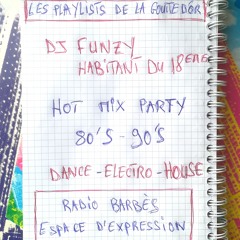 LES PLAYLISTS DE LA GOUTTE D'OR
DJ FUNZY
HABITANT DU 18EME
HOT MIX PARTY
80'S - 90'S
DANCE - ELECTRO - HOUSE
RADIO BARBÈS
ESPACE D'EXPRESSION